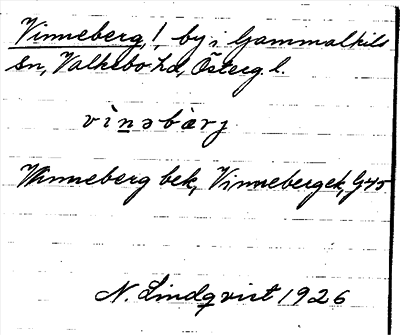 Vinneberg, !, by i Gammalkils
sn, Valkebo hd, Österg. l.
vìnəbærj
Winneberg bek, Vinnebergek, G45
N. Lindqvist 1926